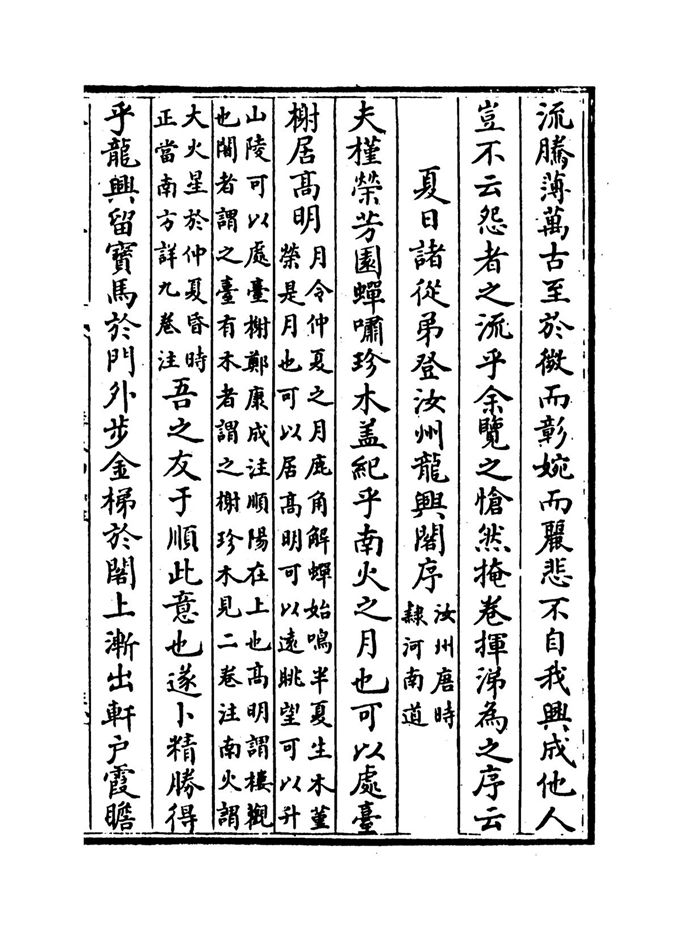 流騰薄萬古至於微而彰婉而麗悲不自我興成他人
豈不云怨者之流乎余覽之愴然掩卷揮涕為之序云
夏日諸從弟登汝州龍興閣序汝州唐時
隸河南道
夫槿榮芳園蟬嘯珍木盖紀乎南火之月也可以處臺
榭居髙明月令仲夏之月鹿角解蟬始鳴半夏生木菫
榮是月也可以居髙明可以逺眺望可以升
山陵可以處臺榭鄭康成注順陽在上也髙明謂樓觀
也闍者謂之臺有木者謂之榭珍木見二卷注南火謂
大火星於仲夏昏時
正當南方詳九卷注吾之友于順此意也遂卜精勝得
乎龍興留寳馬於門外步金梯於閣上漸出軒户霞瞻